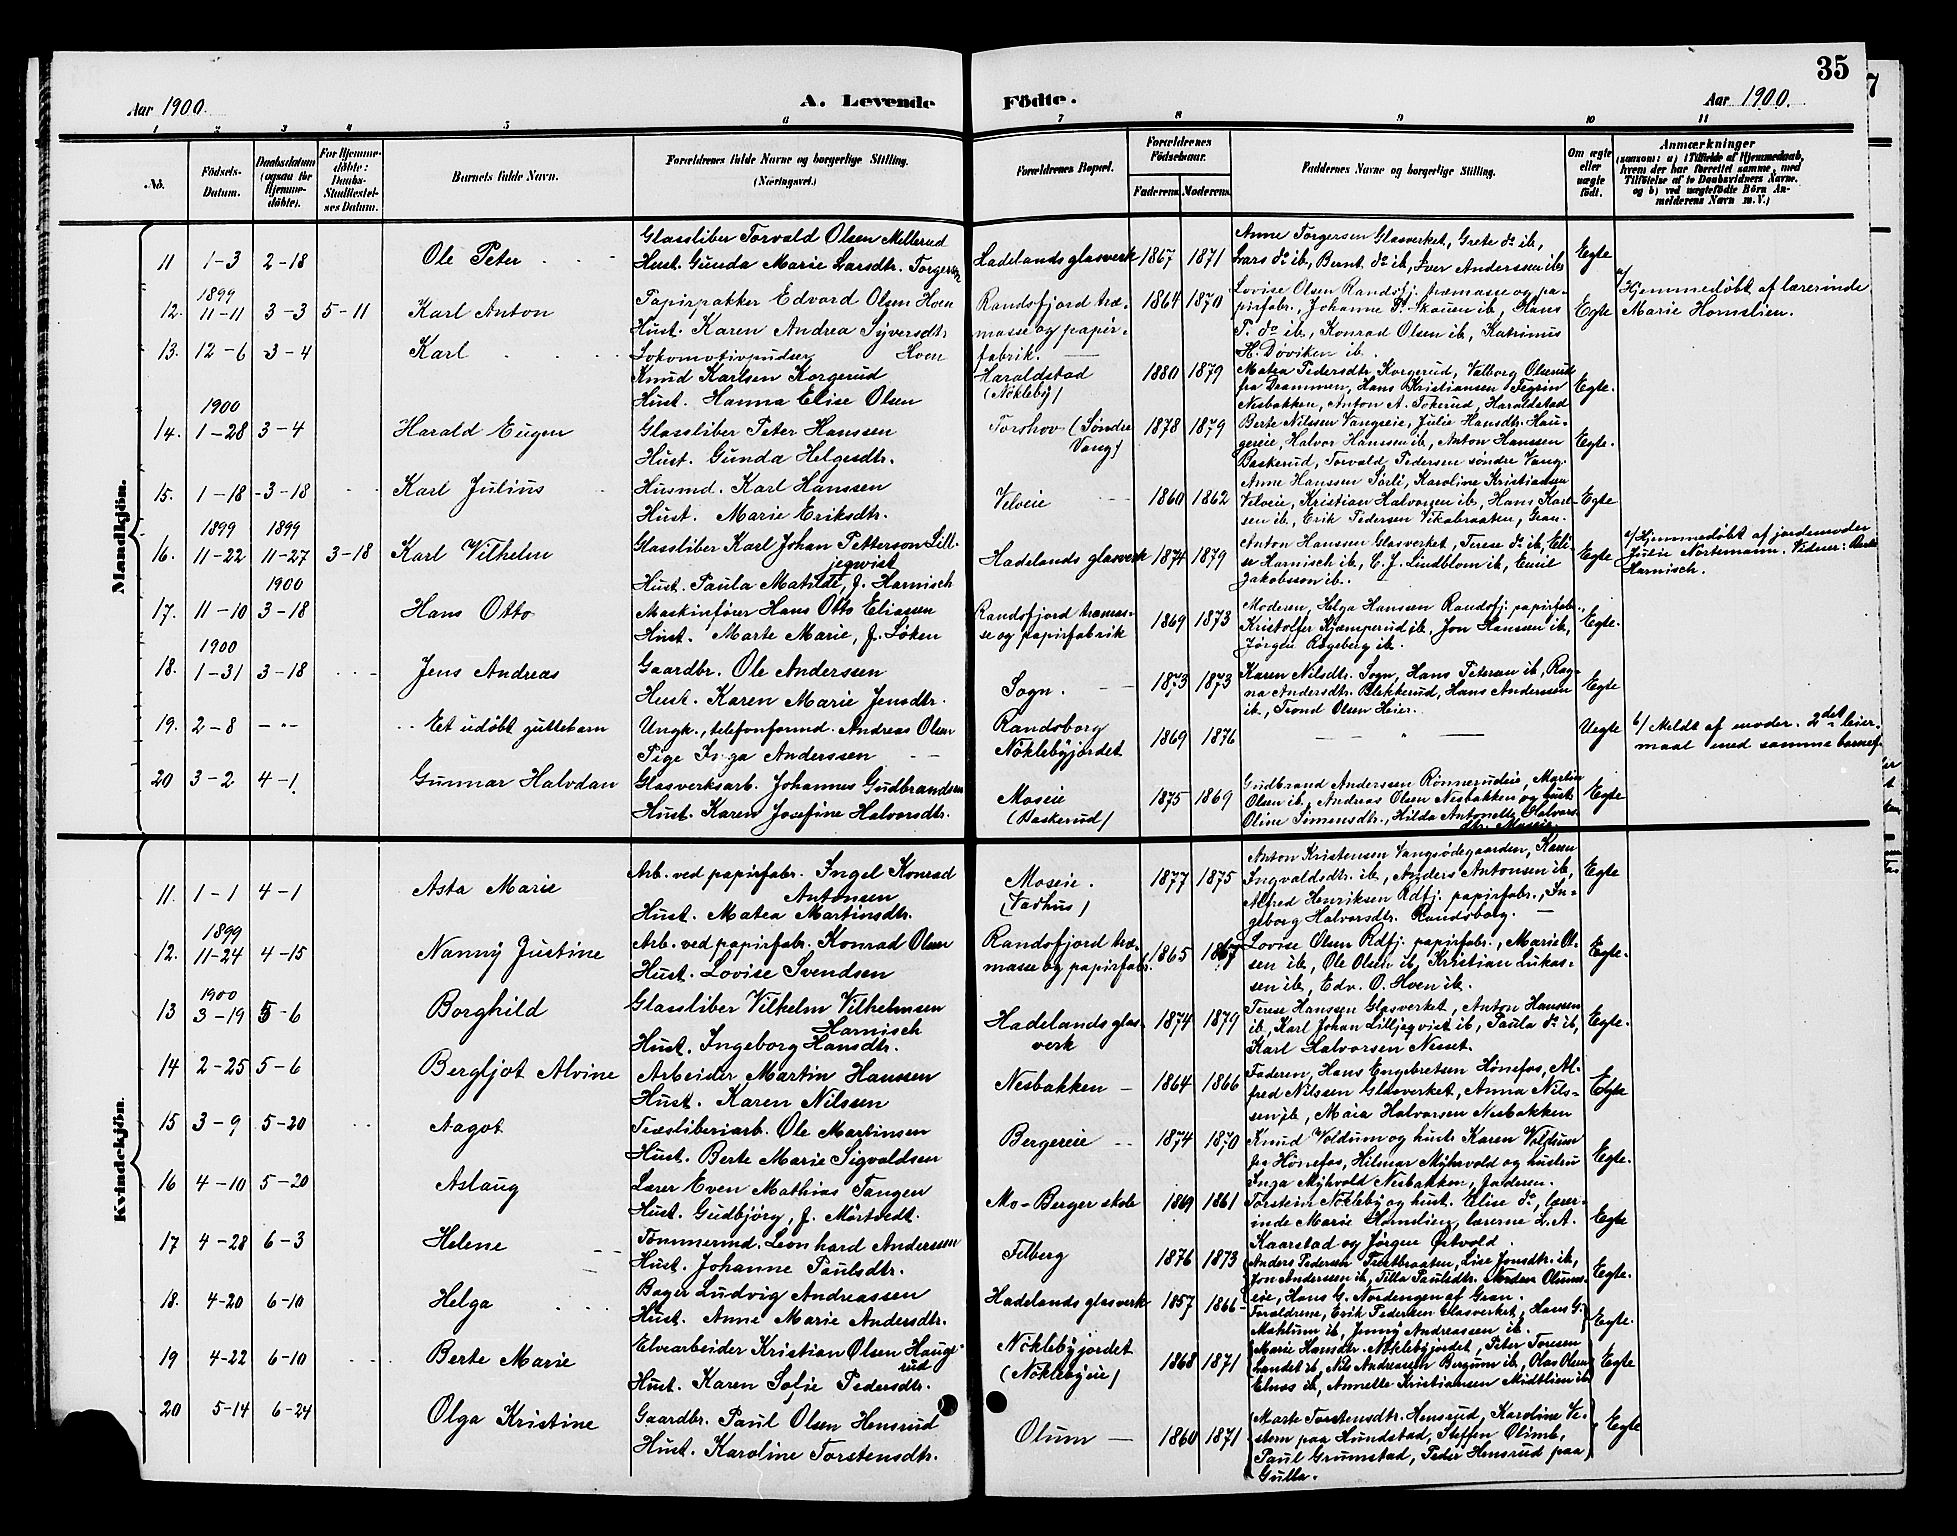 35
Aar 1900.
A. Levende Födte.
Aar 1900.
1 2 3 4 5 6 7 8 9 10 11
No.
Födsels-Datum.
Daabsdatum (ogsaa for Hjemmedöbte).
For Hjemmedöbte: Daabs-Stadfæstelses Datum.
Barnets fulde Navn.
Forældrenes fulde Navne og borgerlige Stilling. (Næringsvei.)
Forældrenes Bopæl.
Forældrenes Födselsaar.
Faderens. Moderens.
Faddernes Navne og borgerlige Stilling.
Om ægte eller uægte födt.
Anmærkninger
(saasom: a) i Tilfælde af Hjemmedaab, hvem der har forrettet samme, med Tilföielse af to Daabsvidners Navne, og b) ved uægtefödte Börn Anmelderens Navn m. V.)
Mandkjön.
11 1-3 2-18 Ole Peter
Glassliber Torvald Olsen Mellerud
Hust. Gunda Marie Larsdtr. Torgersen
Hadelands glasverk 1867 1871
Anne Torgersen Glasverket, Grete do ib,
Lars do ib, Bernt do ib, Iver Anderssen ib
Egte
1899
12. 11-11 3-3 5-11 Karl Anton
Papirpakker Edvard Olsen Hoen
Hust. Karen Andrea Syversdtr. Hoen
Randsfjord træ-
masse og papir-
fabrik.
1864 1870
Lovise Olsen Randsfj. træmasse og pa-
pirfabr., Johanne P. Skøien ib, Hans
P. do ib, Konrad Olsen ib, Katrinus
H. Døviken ib.
Egte
a/ Hjemmedøbt af lærerinde
Marie Homslien.
13. 12-6 3-4 Karl
Lokomotivpudser
Knud Karlsen Korgerud
Hust. Hanna Elise Olsen
Haraldstad
(Nökleby)
1880 1879
Matea Pedersdtr Korgerud, Valborg Olserud
fra Drammen, Hans Kristiansen Tegrin
Nesbakken, Anton A. Tokerud, Haraldstad
Egte.
1900
14. 1-28 3-4 Harald Eugen
Glassliber Peter Hanssen
Hust. Gunda Helgesdtr.
Torshov (Söndre
Vang)
1878 1879
Berte Nilssen Vangseie, Julie Hansdtr. Hau-
gereie, Halvor Hanssen ib, Anton Hanssen
Baskerud, Torvald Pedersen söndre Vang.
Egte.
15. 1-18 3-18 Karl Julius
Husmd. Karl Hanssen
Hust. Marie Eriksdtr.
Velveie
1860 1862
Anne Hanssen Sörli, Karoline Kristiansen
Velveie, Kristian Halvorsen ib, Hans Karl-
sen ib, Erik Pedersen Vikabraaten, Gran.
Egte
1899 1899
16. 11-22 11-27 3-18 Karl Vilhelm
Glassliber Karl Johan Petterson Lill-
jeqwist
Hust. Paula Matilde, f. Harnisch
Hadelands glasverk 1874 1879
Anton Hanssen Glasverket, Terese do ib, Eli-
se Harnisch ib, C. J. Lindblom ib, Emil
Jakobsson ib.
Egte
a/ Hjemmedøbt af jordemoder
Julie Nortemann. Vidner:
Harnisch.
1900
17. 11-10 3-18 Hans Otto
Maskinfører Hans Otto Eliassen
Hust. Marte Marie, f. Løken
Randsfjord træmas-
se og papirfabrik
1869 1873
Moderen, Helga Hanssen Randsfj. papirfabr.,
Kristoffer Kjemperud ib, Jon Hansen ib,
Jörgen Rogeberg ib.
Egte.
1900
18. 1-31 3-18 Jens Andreas
Gaardbr. Ole Anderssen
Hust. Karen Marie Jensdtr.
Sogn.
1873 1873
Karen Nilsdtr. Sogn, Hans Petersen ib, Rag-
na Andersdtr. Blekkerud, Hans Anderssen
ib, Trond Olsen Heier.
Egte
19. 2-8 - " - Et udøbt guttebarn
Ungk., telefonformd. Andreas Olsen
Pige Inga Anderssen
Randsborg
Nöklebyjordet
1869 1876
Uegte
b/ Meldt af moder. 2det leier-
maal med samme barnef.
20 3-2 4-1 Gunnar Halvdan
Glasverksarb. Johannes Gudbrandsen
Hust. Karen Josefine Halvorsdtr.
Moseie
(Baskerud)
1875 1869
Gudbrand Anderssen Rönnerudeie, Martin
Olsen ib, Andreas Olsen Nesbakken og hust.
Oline Simensdtr., Hilda Antonette Halvors-
dtr. Moseie.
Egte
Kvindekjön.
11. 1-1 4-1 Asta Marie
Arb. ved papirfabr. Ingel Konrad
Antonsen
Hust. Matea Martinsdtr.
Moseie.
(Vadhus)
1877 1875
Anton Kristensen Vangsödegaarden, Karen
Ingvaldsdtr. ib, Anders Antonsen ib,
Alfred Henriksen Rdfj. papirfabr., In-
geborg Halvorsdtr. Randsborg.
Egte
1899
12. 11-24 4-15 Nanny Justine
Arb. ved papirfabr. Konrad Olsen
Hust. Lovise Svendsen
Randsfjord træ-
masse og papirfabr.
1865 1867
Lovise Olsen Rdfj. papirfabr., Marie Ol-
sen ib, Ole Olsen ib, Kristian Lukas-
sen ib, Edv. O. Hoen ib.
Egte.
1900
13 3-19 5-6 Borghild
Glassliber Vilhelm Vilhelmsen
Harnisch
Hust. Ingeborg Hansdtr.
Hadelands glas-
verk
1874 1879
Terese Hanssen Glasverket, Anton Hanssen
ib, Karl Johan Lilljeqvist ib, Paula do ib,
Karl Halvorsen Nesset.
Egte.
14 2-25 5-6 Bergljot Alvine
Arbeider Martin Hanssen
Hust. Karen Nilssen
Nesbakken
1864 1866
Faderen, Hans Engebretsen Hönefos, Al-
fred Nilssen Glasverket, Anna Nils-
sen ib, Maia Halvorsen Nesbakken
Egte
15 3-9 5-20 Aagot
Træsliberiarb. Ole Martinsen
Hust. Berte Marie Sigvaldsen
Bergereie
1874 1870
Knud Voldum og hust. Karen Voldum
fra Hönefos, Hilmar Myhrvold og hustru
Inga Myhvold Nesbakken, Faderen.
Egte.
16 4-10 5-20 Aslaug
Lærer Even Mathias Tangen
Hust. Gudbjörg, f. Mörtvedt.
Mo-Berger skole
1869 1861
Torstein Nökleby og hust. Elise do, lærer-
inde Marie Homslien, lærerne L. A.
Kaarstad og Jörgen Östvold.
Egte
17 4-28 6-3 Helene
Tömmermd. Leonhard Anderssen
Hust. Johanne Paulsdtr.
Filberg
1876 1873
Anders Pedersen Tveitbraaten, Lise Jonsdtr. ib,
Jon Anderssen ib, Tilla Paulsdtr. Nordre Olums-
eie, Hans G. Nordengen af Gran.
Egte.
18. 4-20 6-10 Helga
Bager Ludvig Andreassen
Hust. Anne Marie Andersdtr.
Hadelands glasverk 1857 1866
Foraldrene, Erik Pedersen Glasverket, Hans G.
Mahlum ib, Jenny Andreassen ib.
Egte.
19 4-22 6-10 Berte Marie
Elvearbeider Kristian Olsen Hauge-
rud
Hust. Karen Sofie Pedersdtr.
Nöklebyjordet
(Nöklebyeie)
1868 1871
Marie Hansdtr. Nöklebyjordet, Peter Toresen
Landet ib, Nils Andreassen Bergum ib, Olas Olsen
Elnes ib, Annette Kristiansen Midtlien ib
Egte
20 5-14 6-24 Olga Kristine
Gaardbr. Paul Olsen Hensrud
Hust. Karoline Torstensdtr.
Olum
1860 1871
Marte Torstensdtr. Hensrud, Karoline Ve-
stern paa Hundstad, Steffen Olimb,
Paul Grumstad, Peder Hensrud paa
Gulla.
Egte